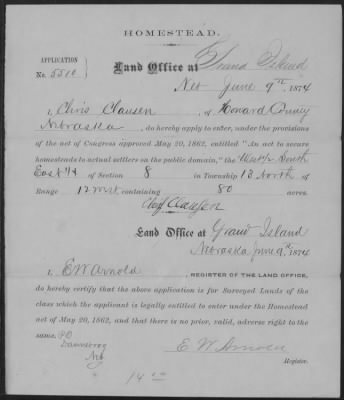 HOMESTEAD.
APPLICATION
No. 5510
Land Office at Grand Island
Neb June 9th, 1874
I, Chris Clausen, of Howard County
Nebraska, do hereby apply to enter, under the provisions
of the act of Congress approved May 20, 1862, entitled "An act to secure
homesteads to actual settlers on the public domain," the West ½ South
East ¼ of Section 8 in Township 13 North of
Range 12 West containing 80 acres.
Clausen
Land Office at Grand Island
Nebraska June 9th, 1874
I, E W Arnold, REGISTER OF THE LAND OFFICE,
do hereby certify that the above application is for Surveyed Lands of the
class which the applicant is legally entitled to enter under the Homestead
act of May 20, 1862, and that there is no prior, valid, adverse right to the
same. PO
Dannebrog
Neb
E. W. Arnold
Register.
14 00